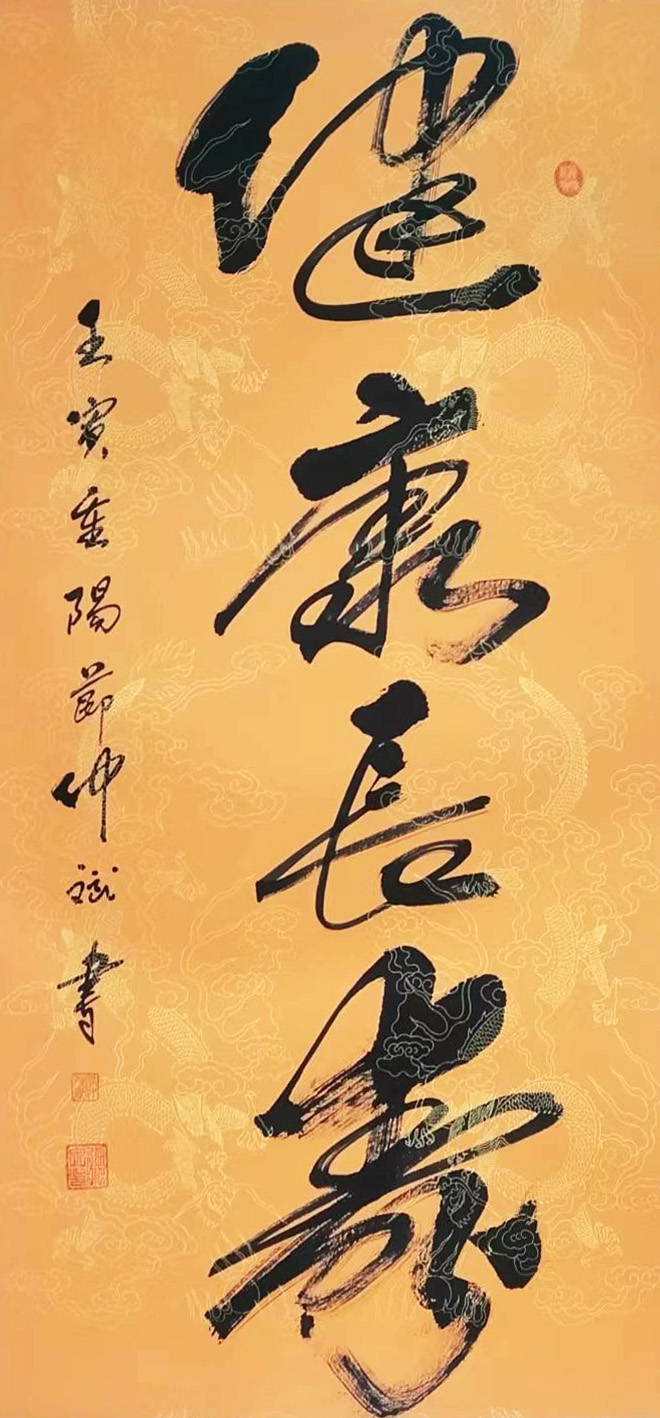 健康長壽
壬寅重陽節仲斌書